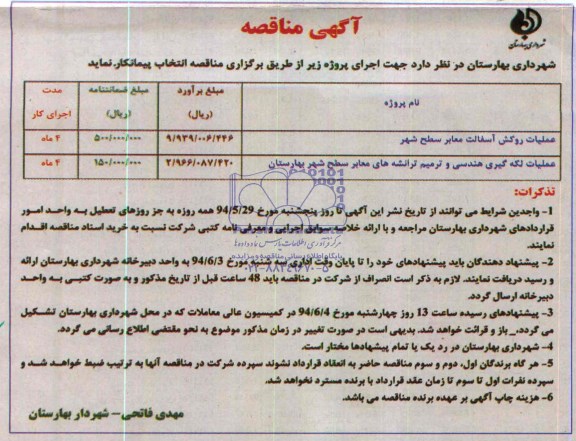 آگهی مناقصه
شهرداری بهارستان
شهرداری بهارستان در نظر دارد جهت اجرای پروژه زیر از طریق برگزاری مناقصه انتخاب پیمانکار نماید
نام پروژه
مبلغ برآورد (ریال)
مبلغ ضمانتنامه (ریال)
مدت اجرای کار
عملیات روکش آسفالت معابر سطح شهر
۹/۹۳۹/۰۰۶/۴۴۶
۵۰۰/۰۰۰/۰۰۰
۴ ماه
عملیات لکه گیری هندسی و ترمیم ترانشه های معابر سطح شهر بهارستان
۲/۹۶۶/۰۸۷/۴۲۰
۱۵۰/۰۰۰/۰۰۰
۴ ماه
تذکرات:
1- واجدین شرایط می توانند از تاریخ نشر این آگهی تا روز پنجشنبه مورخ 94/5/29 همه روزه به جز روزهای تعطیل به واحد امور
قراردادهای شهرداری بهارستان مراجعه و با ارائه خلاصه سوابق اجرایی و معرفی نامه کتبی شرکت نسبت به خرید اسناد مناقصه اقدام
نمایند.
2- پیشنهاد دهندگان باید پیشنهادهای خود را تا پایان وقت اداری سه شنبه مورخ 94/6/3 به واحد دبیرخانه شهرداری بهارستان ارائه
و رسید دریافت نمایند. لازم به ذکر است انصراف از شرکت در مناقصه باید 48 ساعت قبل از تاریخ مذکور و به صورت کتبی به واحد
دبیرخانه ارسال گردد.
3- پیشنهادهای رسیده ساعت 13 روز چهارشنبه مورخ 94/6/4 در کمیسیون عالی معاملات که در محل شهرداری بهارستان تشکیل
می گردد، باز و قرائت خواهد شد. بدیهی است در صورت تغییر در زمان مذکور موضوع به نحو مقتضی اطلاع رسانی می گردد.
4- شهرداری بهارستان در رد یک یا تمام پیشنهادها مختار است.
5- هر گاه برندگان اول، دوم و سوم مناقصه حاضر به انعقاد قرارداد نشوند سپرده شرکت در مناقصه آنها به ترتیب ضبط خواهد شد و
سپرده نفرات اول تا سوم تا زمان عقد قرارداد با برنده مسترد نخواهد شد.
6- هزینه چاپ آگهی بر عهده برنده مناقصه می باشد.
مهدی فاتحی- شهردار بهارستان